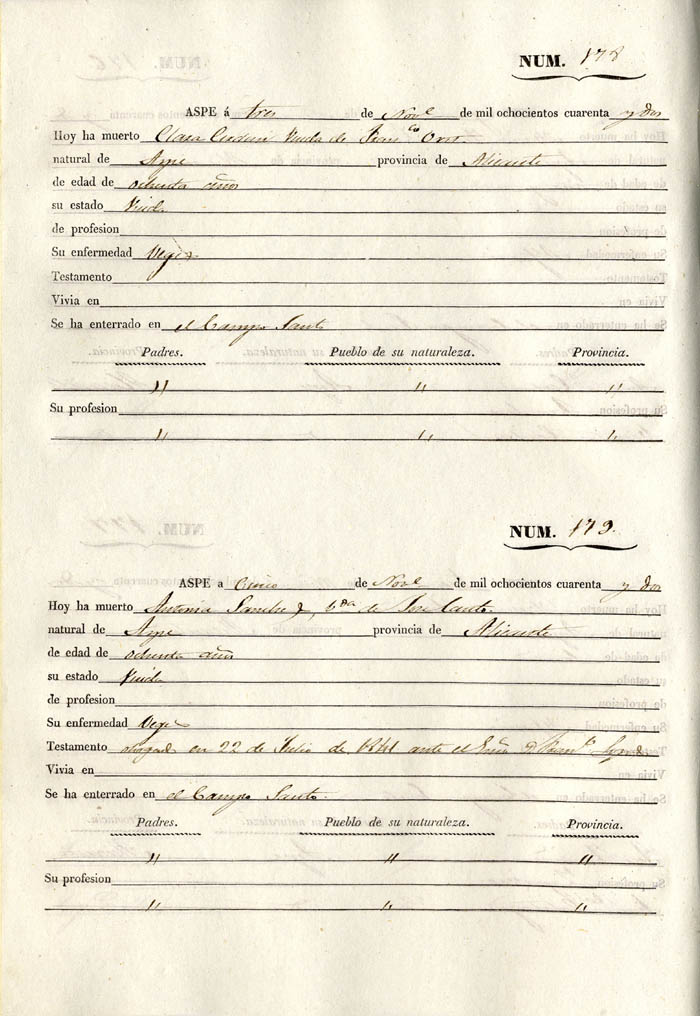 NUM. 178
ASPE á tres de Nove de mil ochocientos cuarenta y dos
Hoy ha muerto Clara Viuda de Franco
natural de Aspe provincia de Alicante
de edad de ochenta años
su estado Viuda
de profesion
Su enfermedad Vejez
Testamento
Vivia en
Se ha enterrado en el Campo Santo
Padres. Pueblo de su naturaleza. Provincia.
" " "
Su profesion
" " "
NUM. 179.
ASPE a Cinco de Nove de mil ochocientos cuarenta y dos
Hoy ha muerto Antonia Sanchez, vda de Jose Canto.
natural de Aspe provincia de Alicante
de edad de ochenta años
su estado Viuda
de profesion
Su enfermedad Vejez
Testamento otorgado en 22 de Julio de 1841 ante el Esno D.
Vivia en
Se ha enterrado en el Campo Santo.
Padres. Pueblo de su naturaleza. Provincia.
" " "
Su profesion
" " "